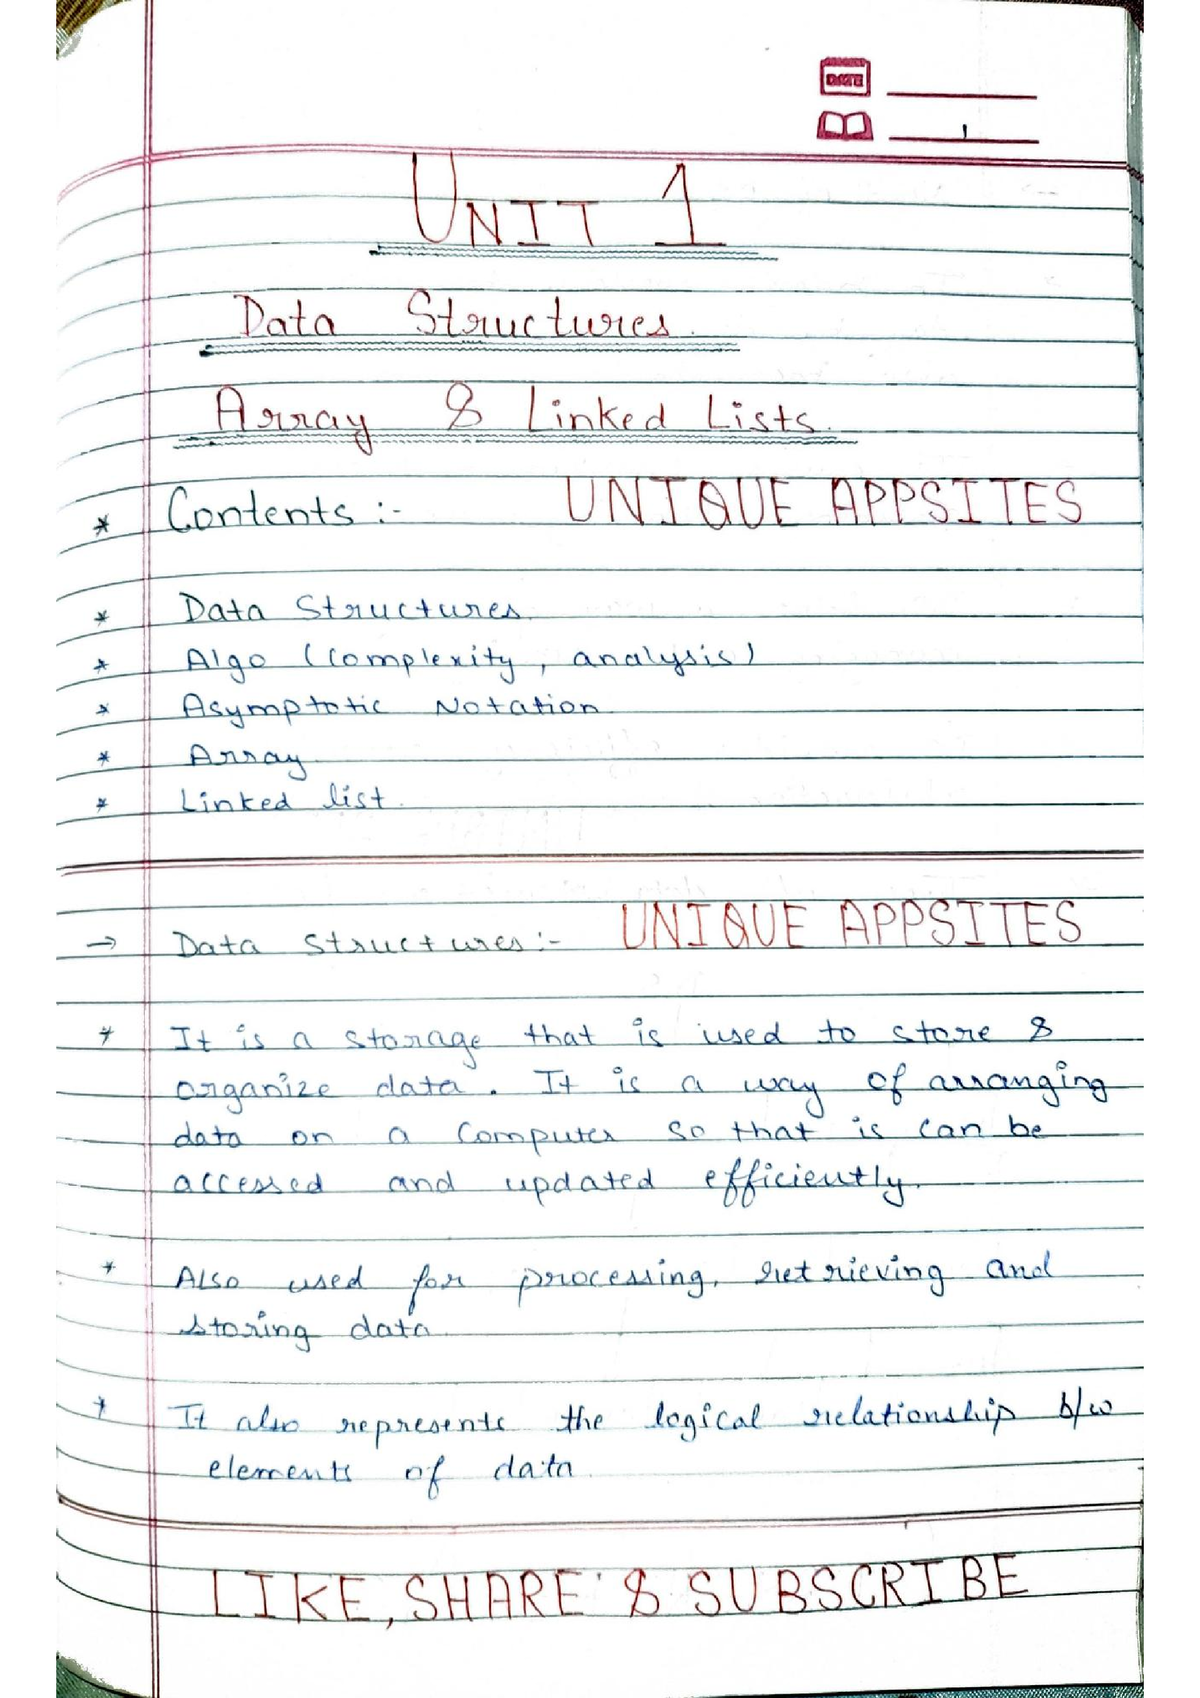 DATE
1
UNIT 1
Data Structures.
Array & Linked Lists.
* Contents :- UNIQUE APPSITES
* Data Structures.
* Algo (Complexity, analysis)
* Asymptotic Notation.
* Array
* Linked list.
→ Data Structures :- UNIQUE APPSITES
* It is a storage that is used to store &
organize data. It is a way of arranging
data on a computer so that is can be
accessed and updated efficiently.
* Also used for processing, retrieving and
storing data.
* It also represents the logical relationship b/w
elements of data.
LIKE, SHARE & SUBSCRIBE